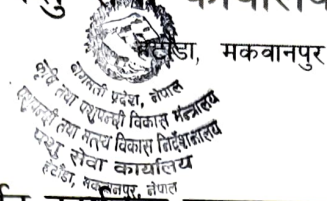 हेटौंडा, मकवानपुर
बागमती प्रदेश, नेपाल
कृषि तथा पशुपन्छी विकास मन्त्रालय
पशुपन्छी तथा मत्स्य विकास निर्देशनालय
पशु सेवा कार्यालय
हेटौंडा, मकवानपुर, नेपाल